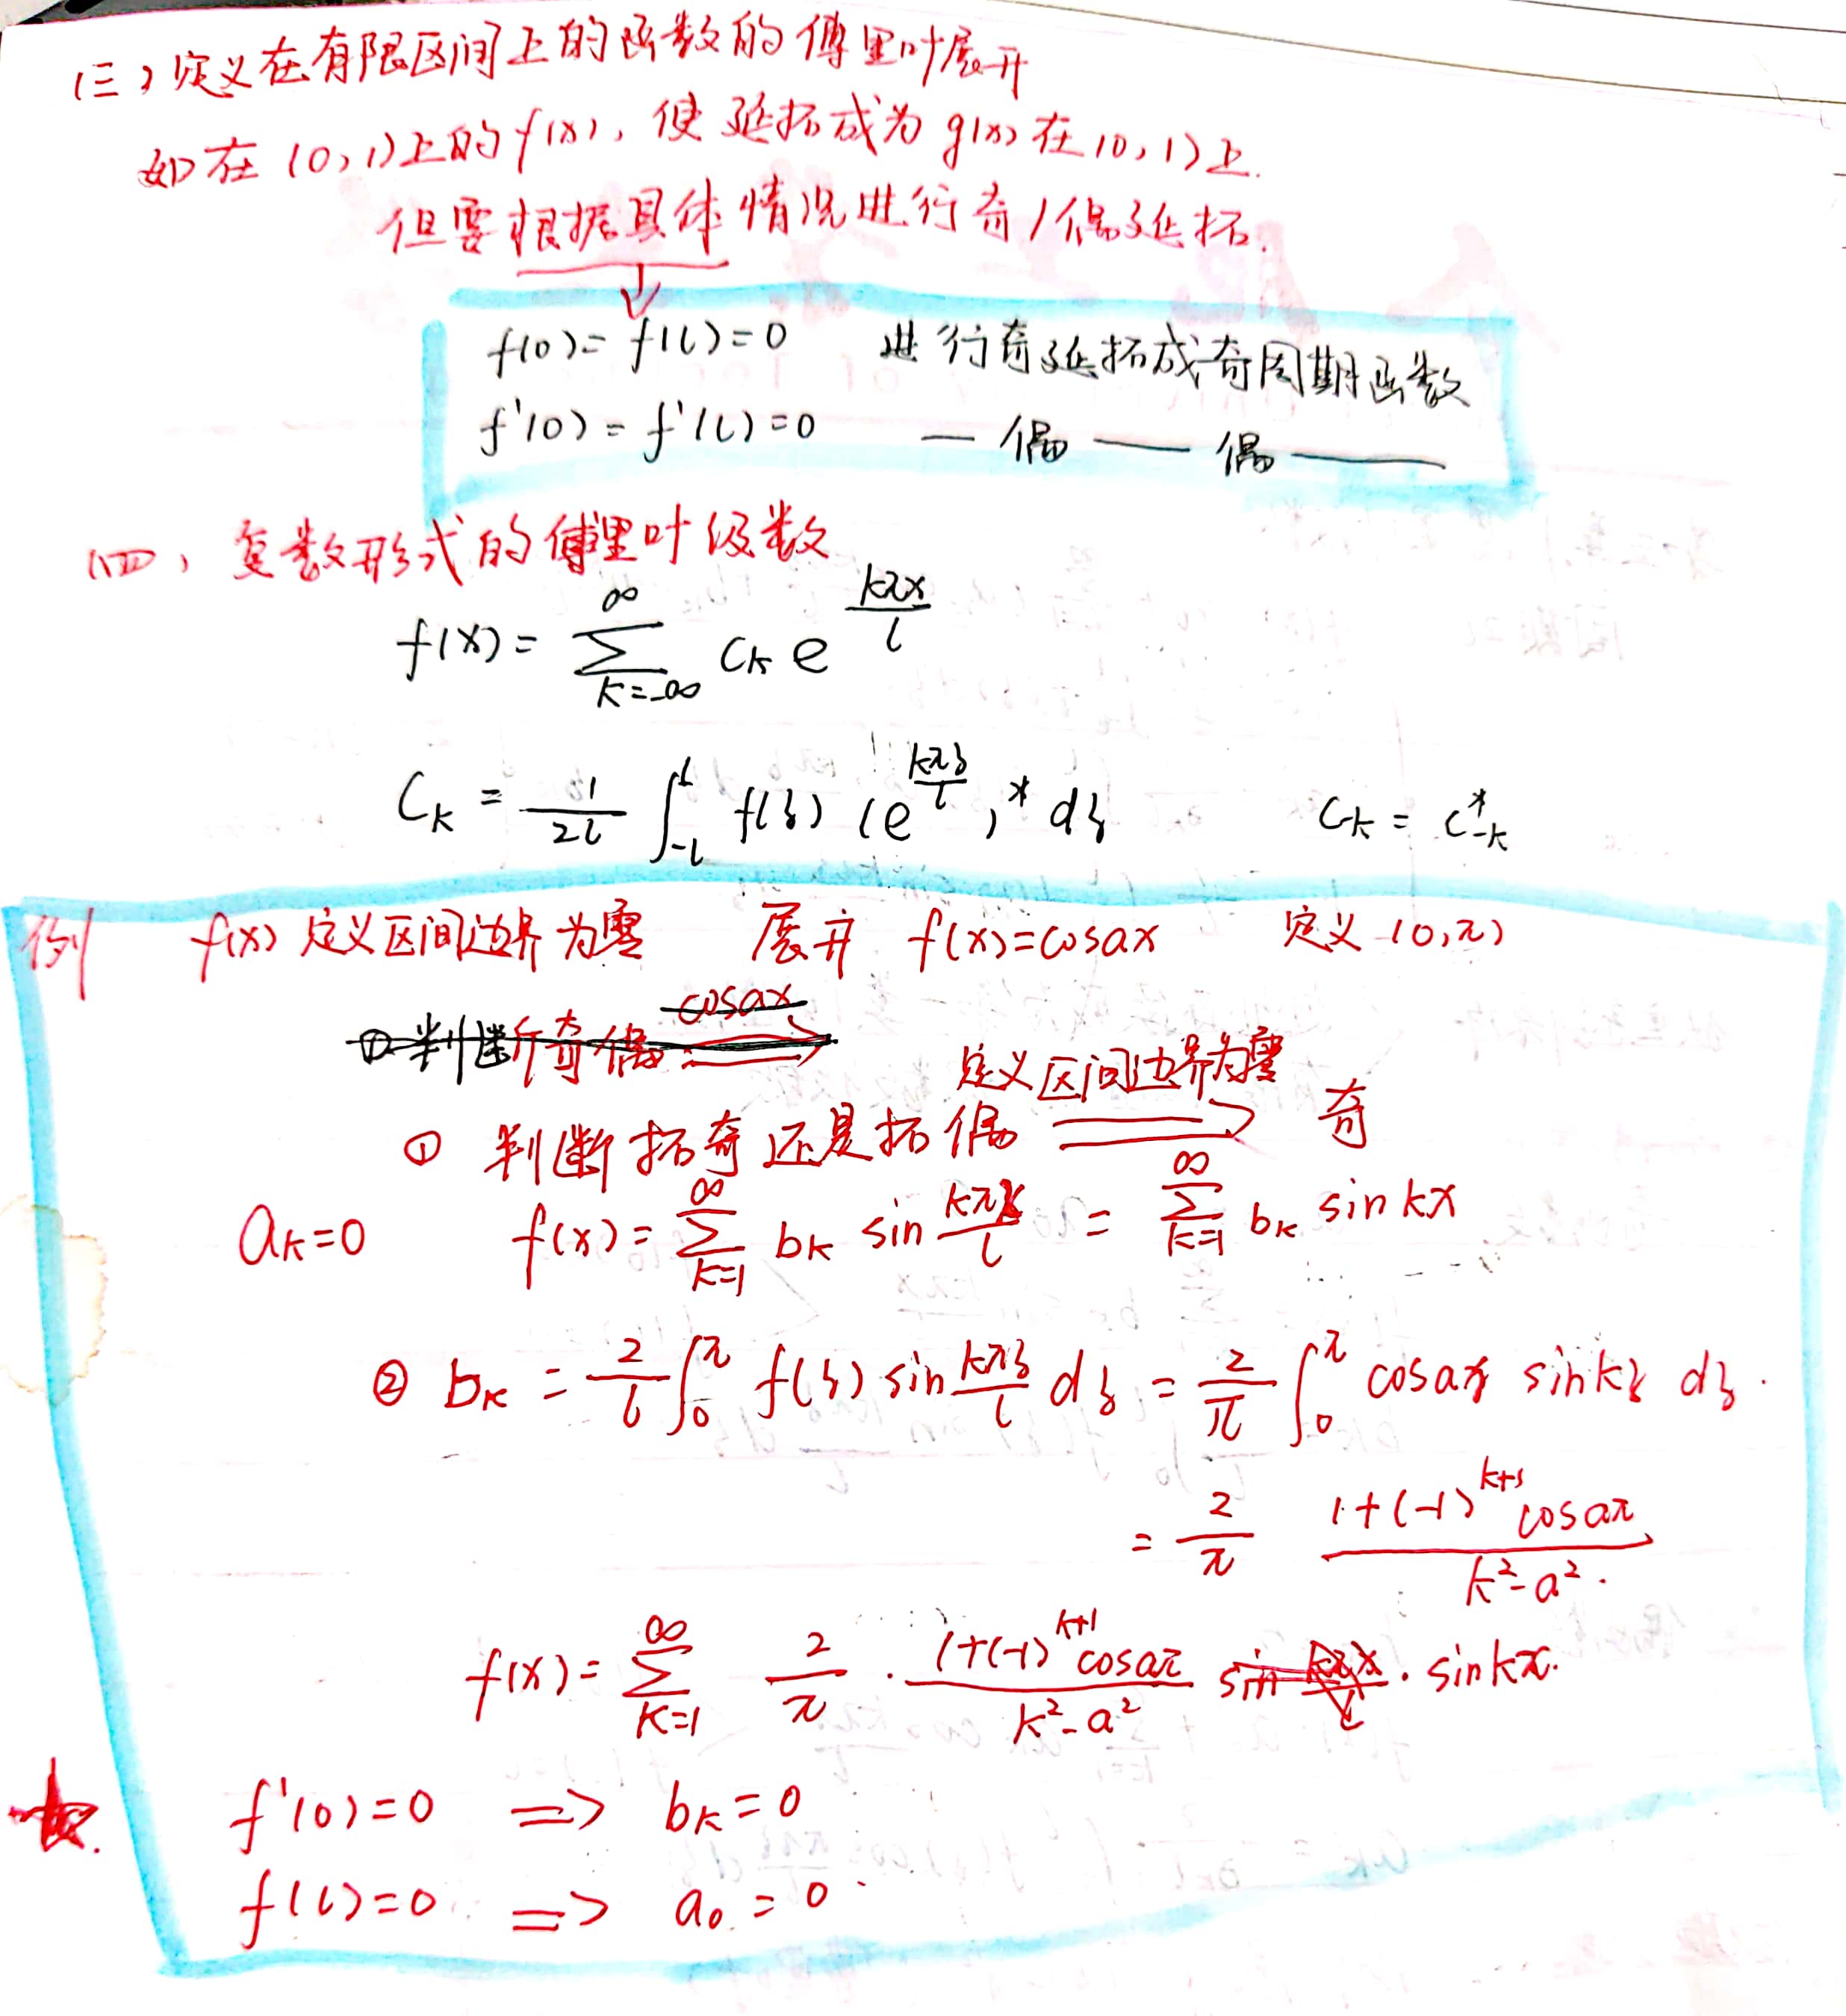 (三)定义在有限区间上的函数的傅里叶展开
如在(0,l)上的f(x),使延拓成为g(x)在(0,l)上.
但要根据具体情况进行奇/偶延拓.
f(0)=f(l)=0 进行奇延拓成奇周期函数
f'(0)=f'(l)=0 — 偶 — 偶 —
(四)复数形式的傅里叶级数
f(x)=∑_{k=-∞}^{∞} C_k e^{kπx/l}
C_k = 1/(2l) ∫_{-l}^{l} f(ξ) (e^{kπξ/l})^* dξ C_k = C_{-k}^*
例 f(x)定义区间边界为零 展开 f(x)=cosax 定义(0,π)
①判断奇偶 cosax ⇒
① 判断拓奇还是拓偶 定义区间边界为零 ⇒ 奇
a_k=0 f(x)=∑_{k=1}^{∞} b_k sin kπx/l = ∑_{k=1}^{∞} b_k sinkx
② b_k = 2/l ∫_0^π f(ξ) sin kπξ/l dξ = 2/π ∫_0^π cosaξ sinkξ dξ.
= 2/π (1+(-1)^{k+1}cosaπ)/(k²-a²).
f(x)=∑_{k=1}^{∞} 2/π · (1+(-1)^{k+1}cosaπ)/(k²-a²) sin kπx/l · sinkx.
f'(0)=0 ⇒ b_k=0
f(l)=0 ⇒ a_0=0.